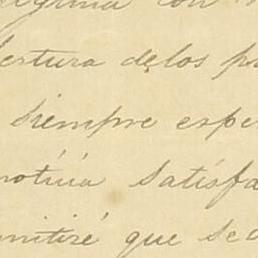 con
ertura de los p
siempre espe
noticia satisfa
mitiré que se